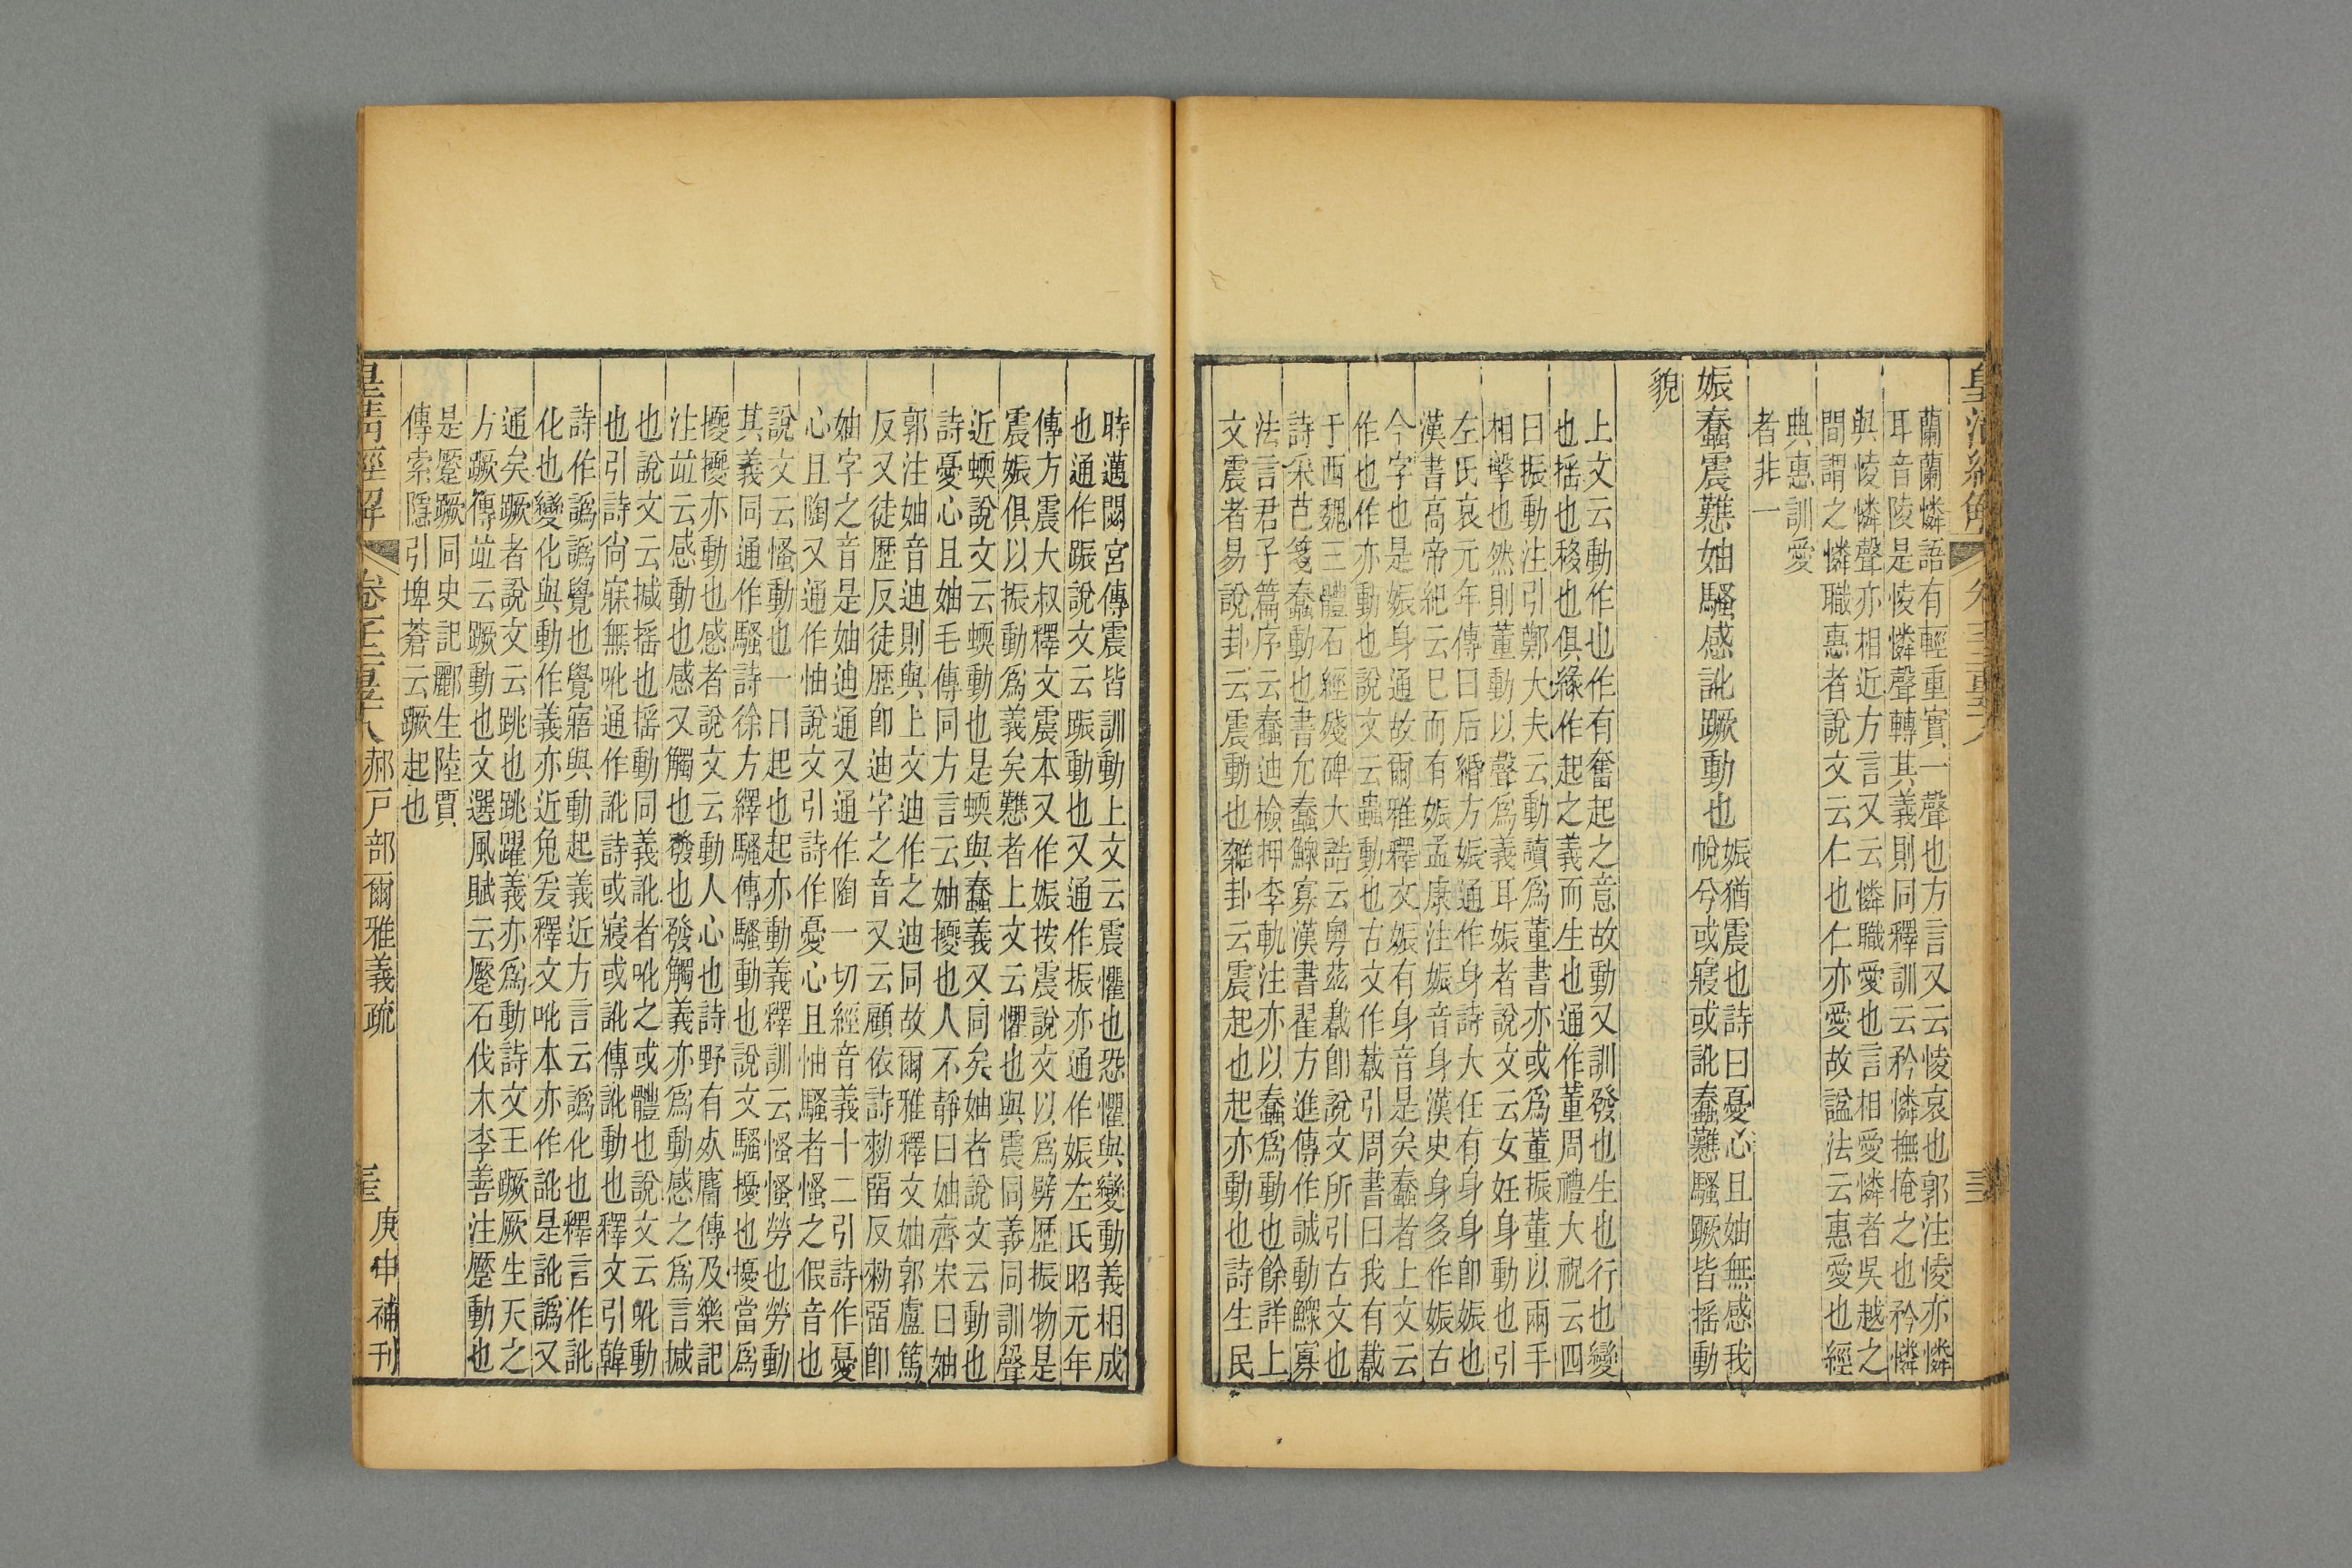 蘭蘭憐語有輕重實一聲也方言又云㥄哀也郭注㥄亦憐
耳音陵是㥄憐聲轉其義則同釋訓云矜憐撫掩之也矜憐
與㥄憐聲亦相近方言又云憐職愛也言相愛憐者吳越之
間謂之憐職惠者說文云仁也仁亦愛故諡法云惠愛也經
典惠訓愛
者非一
娠蠢震戁妯騷感訛蹶動也
娠猶震也詩曰憂心且妯無感我
帨兮或寢或訛蠢戁騷蹶皆揺動
貌
上文云動作也作有奮起之意故動又訓發也生也行也變
也揺也移也俱緣作起之義而生也通作董周禮大祝云四
曰振動注引鄭大夫云動讀為董書亦或為董振董以兩手
相擊也然則董動以聲為義耳娠者說文云女妊身動也引
左氏哀元年傳曰后緡方娠通作身詩大任有身身卽娠也
漢書高帝紀云已而有娠孟康注娠音身漢史身多作娠古
今字也是娠身通故爾雅釋文娠有身音是矣蠢者上文云
作也作亦動也說文云蠢動也古文作𢧵引周書曰我有𢧵
于西魏三體石經殘碑大誥云粵茲𢧵卽說文所引古文也
詩采芑箋蠢動也書允蠢鰥寡漢書翟方進傳作誠動鰥寡
法言君子篇序云蠢迪檢押李軌注亦以蠢為動也餘詳上
文震者易說卦云震動也雜卦云震起也起亦動也詩生民
時邁閟宮傳震皆訓動上文云震懼也恐懼與變動義相成
也通作踬說文云踬動也又通作振亦通作娠左氏昭元年
傳方震大叔釋文震本又作娠按震說文以為劈歷振物是
震娠俱以振動為義矣戁者上文云懼也與震同義同訓聲
近蝡說文云蝡動也是蝡與蠢義又同矣妯者說文云動也
詩憂心且妯毛傳同方言云妯擾也人不靜曰妯齊宋曰妯
郭注妯音迪則與上文迪作之迪同故爾雅釋文妯郭盧篤
反又徒歷反徒歷卽迪字之音又云顧依詩勑畱反勑畱卽
妯字之音是妯迪通又通作陶一切經音義十二引詩作憂
心且陶又通作怞說文引詩作憂心且怞騷者慅之假音也
說文云慅動也一曰起也起亦動義釋訓云慅慅勞也勞動
其義同通作騷詩徐方繹騷傳騷動也說文騷擾也擾當為
擾擾亦動也感者說文云動人心也詩野有死麕傳及樂記
注竝云感動也感又觸也發也發觸義亦為動感之為言揻
也說文云揻搖也搖動同義訛者吪之或體也說文云吪動
也引詩尙寐無吪通作訛詩或寢或訛傳訛動也釋文引韓
詩作譌譌覺也覺寤與動起義近方言云譌化也釋言作訛
化也變化與動作義亦近兔爰釋文吪本亦作訛是訛譌又
通矣蹶者說文云跳也跳躍義亦為動詩文王蹶厥生天之
方蹶傳竝云蹶動也文選風賦云蹷石伐木李善注蹷動也
是蹷蹶同史記酈生陸賈
傳索隱引埤蒼云蹶起也
皇淸經解
卷千二百五十八 郝戶部爾雅義疏
庚申補刊